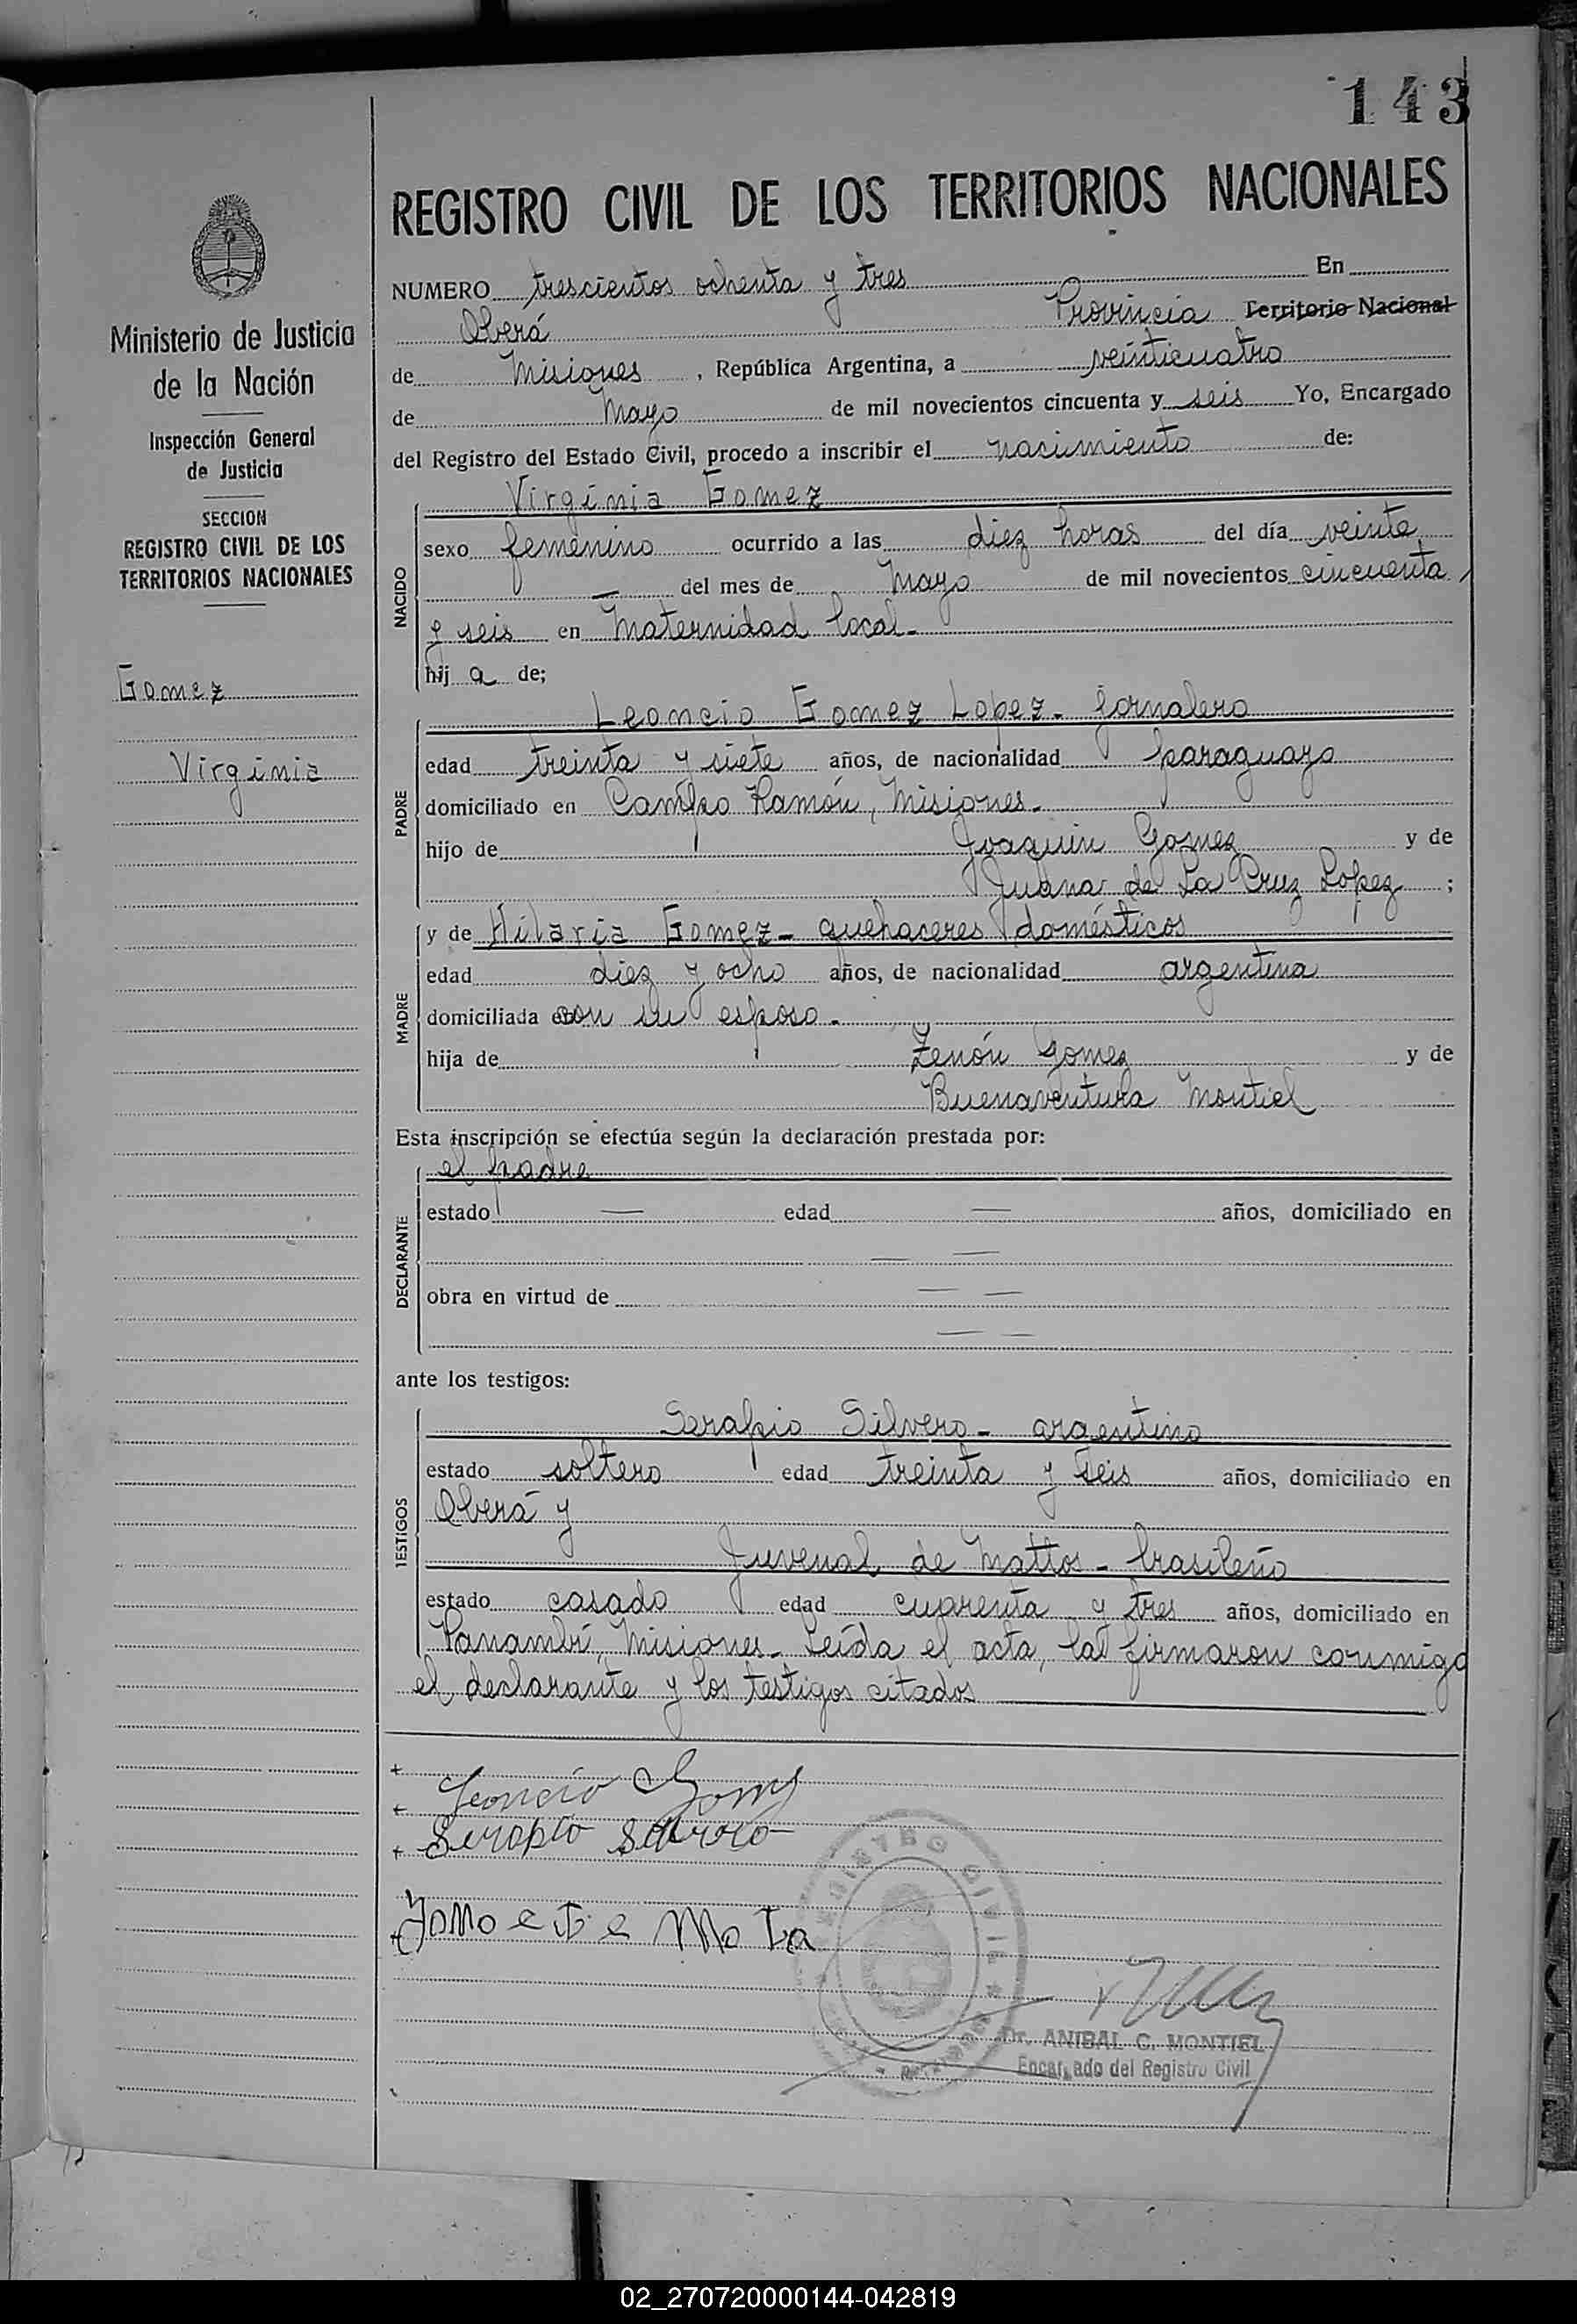 143
REGISTRO CIVIL DE LOS TERRITORIOS NACIONALES
Ministerio de Justicia
de la Nación
Inspección General
de Justicia
SECCION
REGISTRO CIVIL DE LOS
TERRITORIOS NACIONALES
Gomez
Virginia
NUMERO trescientos ochenta y tres En
Oberá Provincia Territorio Nacional
de Misiones, República Argentina, a veinticuatro
de Mayo de mil novecientos cincuenta y seis Yo, Encargado
del Registro del Estado Civil, procedo a inscribir el nacimiento de:
NACIDO
Virginia Gomez
sexo femenino ocurrido a las diez horas del día veinte
— del mes de Mayo de mil novecientos cincuenta
y seis en Maternidad local.
hij a de;
PADRE
Leoncio Gomez Lopez - jornalero
edad treinta y siete años, de nacionalidad paraguayo
domiciliado en Campo Ramón, Misiones.
hijo de Joaquin Gomez y de
Juana de La Cruz Lopez ;
MADRE
y de Hilaria Gomez - quehaceres domésticos
edad diez y ocho años, de nacionalidad argentina
domiciliada en con su esposo.
hija de Zenón Gomez y de
Buenaventura Montiel
Esta inscripción se efectúa según la declaración prestada por:
DECLARANTE
el padre
estado — edad — años, domiciliado en
— —
obra en virtud de — —
— —
ante los testigos:
TESTIGOS
Serapio Silvero - argentino
estado soltero edad treinta y seis años, domiciliado en
Oberá y
Juvenal de Mattos - brasileño
estado casado edad cuarenta y tres años, domiciliado en
Panambí, Misiones. Leída el acta, la firmaron conmigo
el declarante y los testigos citados
Leoncio Gomez
Serapio Silvero
REGISTRO CIVIL
Dr. ANIBAL C. MONTIEL
Encargado del Registro Civil
02_270720000144-042819